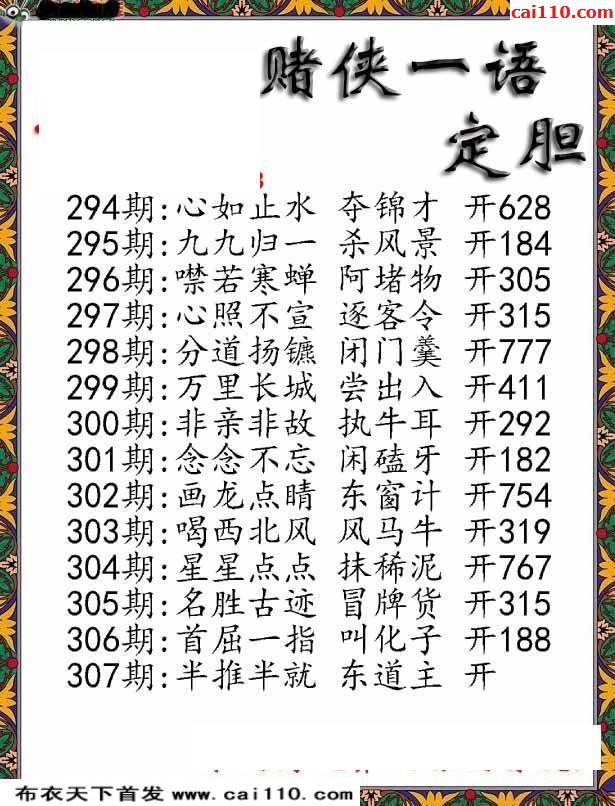 cai110.com
赌侠一语
定胆
294期:心如止水 夺锦才 开628
295期:九九归一 杀风景 开184
296期:噤若寒蝉 阿堵物 开305
297期:心照不宣 逐客令 开315
298期:分道扬镳 闭门羹 开777
299期:万里长城 尝出入 开411
300期:非亲非故 执牛耳 开292
301期:念念不忘 闲磕牙 开182
302期:画龙点睛 东窗计 开754
303期:喝西北风 风马牛 开319
304期:星星点点 抹稀泥 开767
305期:名胜古迹 冒牌货 开315
306期:首屈一指 叫化子 开188
307期:半推半就 东道主 开
布衣天下首发 www.cai110.com